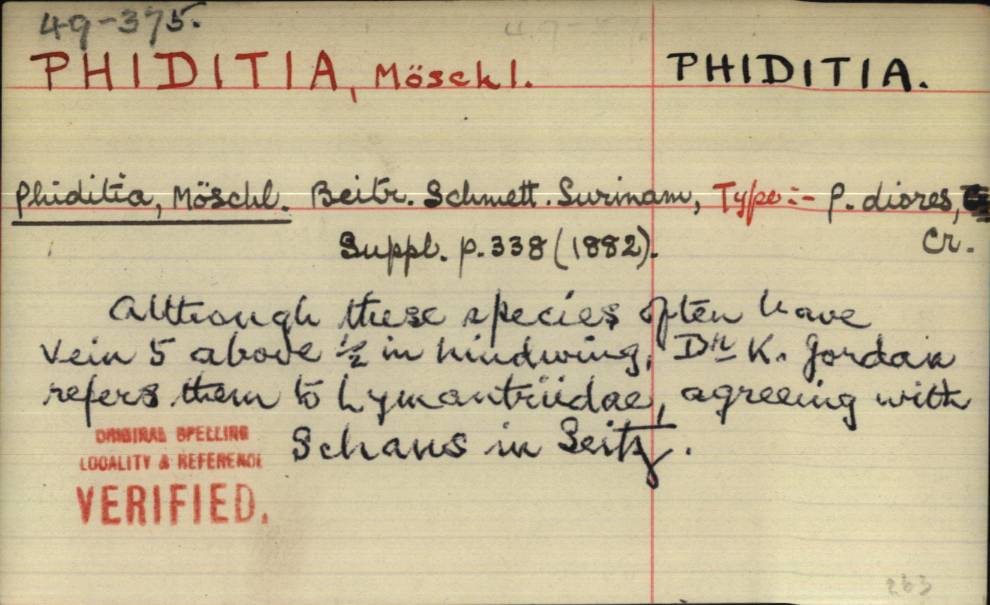 49-375.
PHIDITIA, Möschl. PHIDITIA.
Phiditia, Möschl. Beitr. Schmett. Surinam, Type:- P. diores,
Suppl. p. 338 (1882). Cr.
Although these species often have
vein 5 above ½ in hindwing, Dr K. Jordan
refers them to Lymantriidae, agreeing with
Schaus in Seitz.
ORIGINAL SPELLING
LOCALITY & REFERENCE
VERIFIED.
263